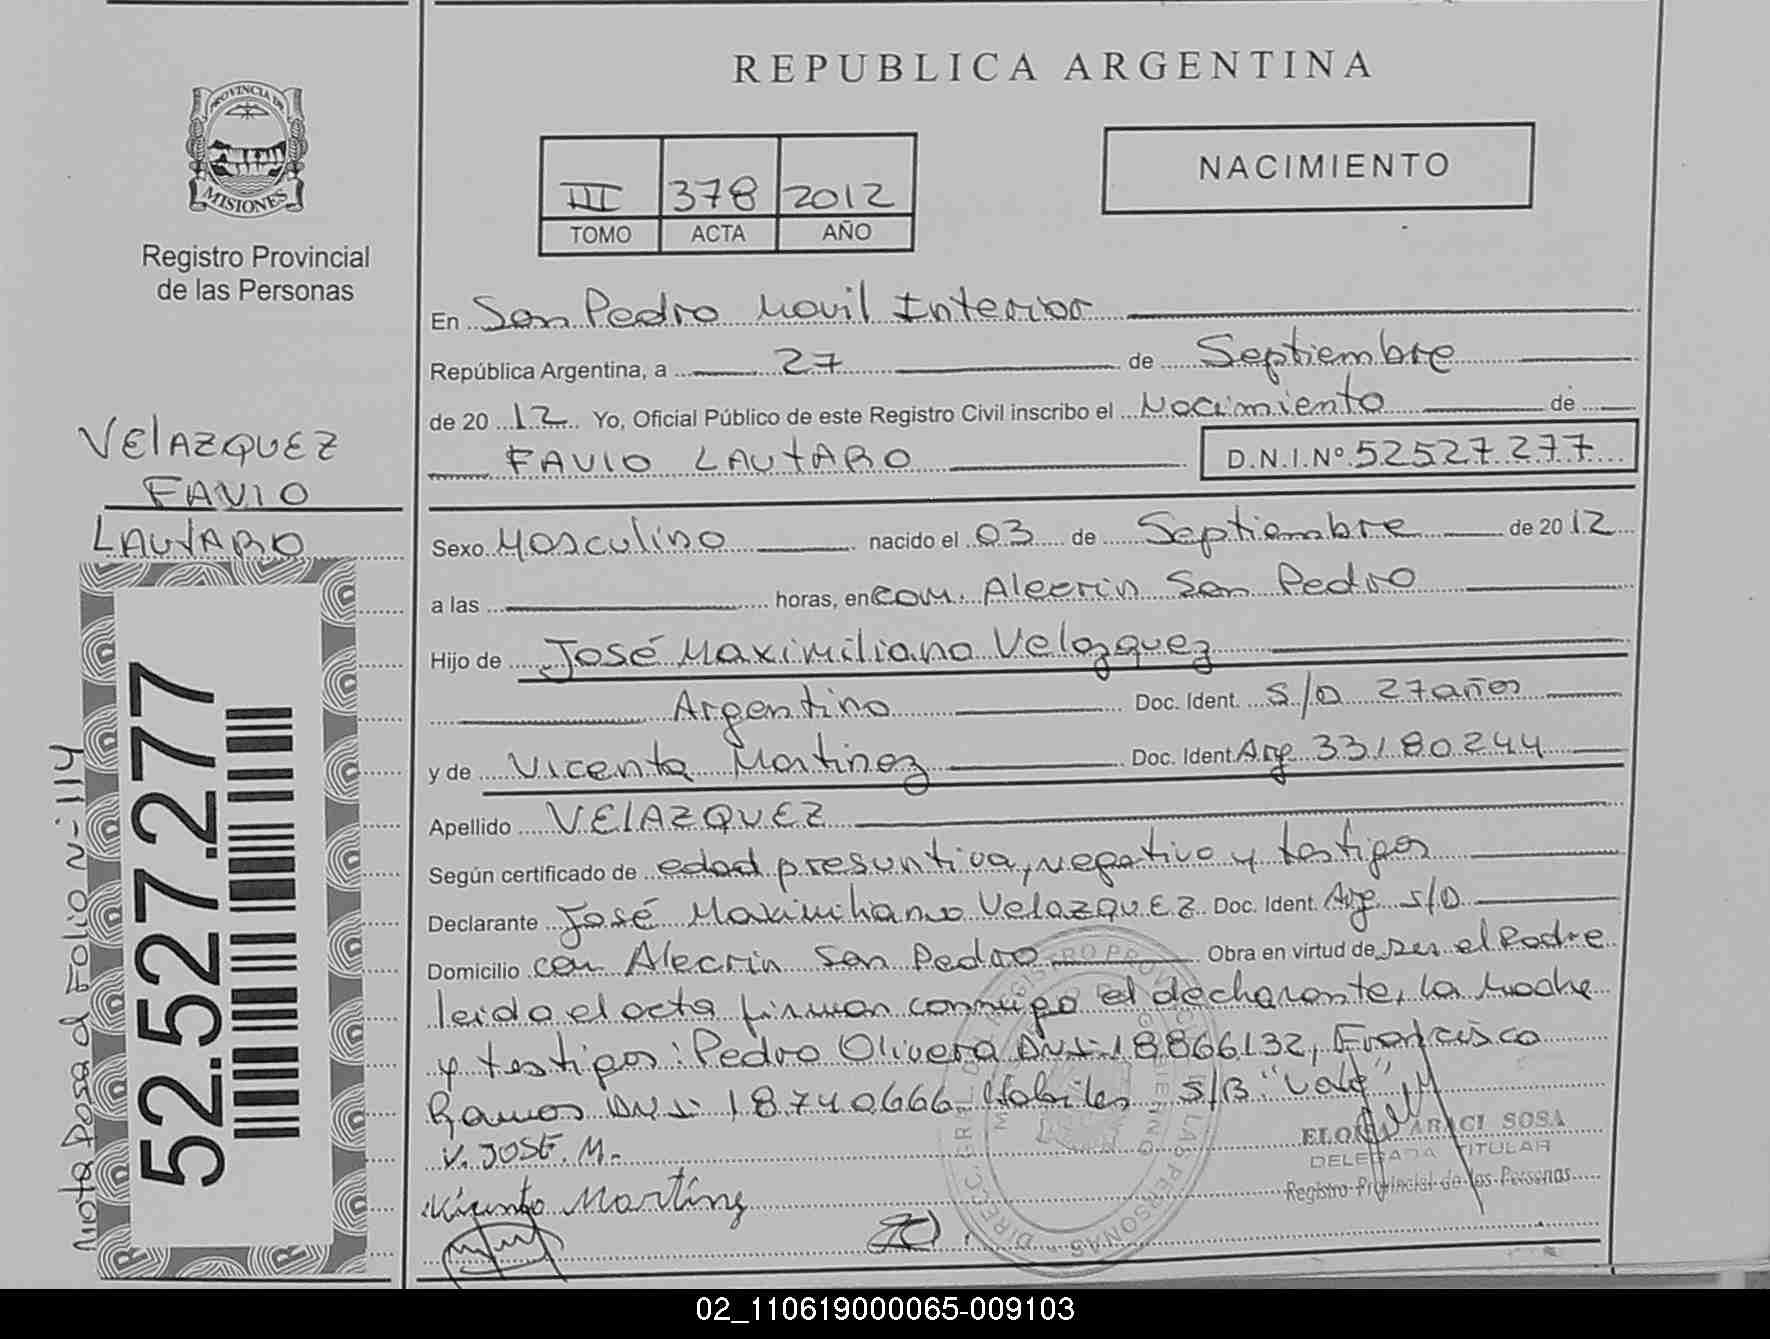 REPUBLICA ARGENTINA
PROVINCIA DE
MISIONES
Registro Provincial
de las Personas
III 378 2012
TOMO ACTA AÑO
NACIMIENTO
En San Pedro Movil Interior
República Argentina, a 27 de Septiembre
de 20 12 Yo, Oficial Público de este Registro Civil inscribo el Nacimiento de
FAVIO LAUTARO D.N.I.Nº 52527277
VELAZQUEZ
FAVIO
LAUTARO
Sexo Masculino nacido el 03 de Septiembre de 20 12
a las horas, en com. Alecrin San Pedro
Hijo de José Maximiliano Velazquez
Argentino Doc. Ident. S/D 27 años
y de Vicenta Martinez Doc. Ident Arg 33180244
Apellido VELAZQUEZ
Según certificado de edad presuntiva, negativo y testigos
Declarante José Maximiliano VelazquEz Doc. Ident. Arg S/D
Domicilio com Alecrin San Pedro Obra en virtud de ser el Padre
leida el acta firman conmigo el declarante, la madre
y testigos: Pedro Olivera DNI: 18866132, Francisco
Ramos DNI: 18740666 Habiles S/B "Vale"
V. JOSE. M.
Vicenta Martinez
ELOISA ARACI SOSA
DELEGADA TITULAR
Registro Provincial de las Personas
52.527.277
Nota Pasa al Folio Nº 114
02_110619000065-009103